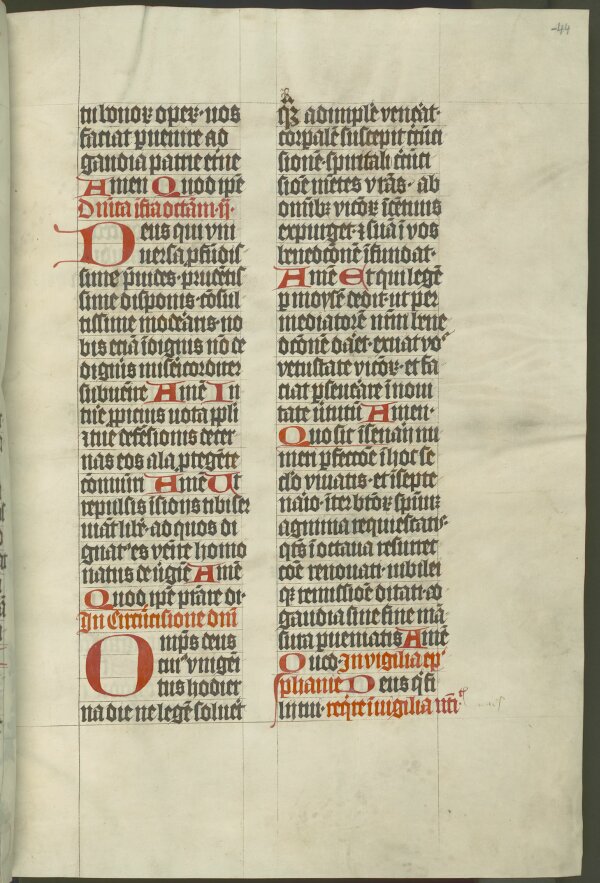 44
in bonoꝝ opeꝝ · uos
faciat p̄uenire ad
gaudia patrie etn̄e
Amen Quod ip̄e
Dn̄ica ifra octam̄ · q̄ ·
Deus qui vni
uersa p̄fūdis
sime p̄uides · prudētis
sime disponis · cōsul
tissime moderaris · no
bis etiā īdignis nō de
dignis misericorditer
subuēire Amē In
tuē p̄picius uota pp̄li
ꝛ tue defēsionis exter
nas eos ala p̄tegente
cōmuni Amē Ut
repulsis ī sionis tibi ser
uiāt libē · ad quos di
gnat9 es venire homo
natus de v̄gīe Amē
Quod ip̄e p̄stare di ·
In Circūcisione dn̄i
Omp̄s deus
cui9 vnigēi
tus hodier
na die ne legē soluēt
qꝫ adimplē venēat ·
corpalē suscepit circūci
sionē · spiritali circūci
siōe mētes vr̄as · ab
omībꝫ vicioꝝ īcētiuis
expurget · ꝛ suā ī vos
benedcōnē īfundat ·
Amē Et qui legē
p moysē dedit · ut per
mediatorē nr̄m bene
dcōnē daret · exuat vos
vetustate vicioꝝ · et fa
ciat pseuerare ī noui
tate v̄tutū Amen ·
Quo sic ī senarij nu
meri pfectōe ī hoc se
clo viuatis · et ī septe
nario · īter btoꝝ spirituū
agmina requiescatis ·
qtꝰ ī octaua resurrec
cōe renouati · iubilei
qꝫ remissiōe ditati · ad
gaudia sine fine mā
sura pueniatis Amē
Quod In vigilia epi
phanie Deus q̄ fi
lij tui · req̄re ī uigilia nr̄i